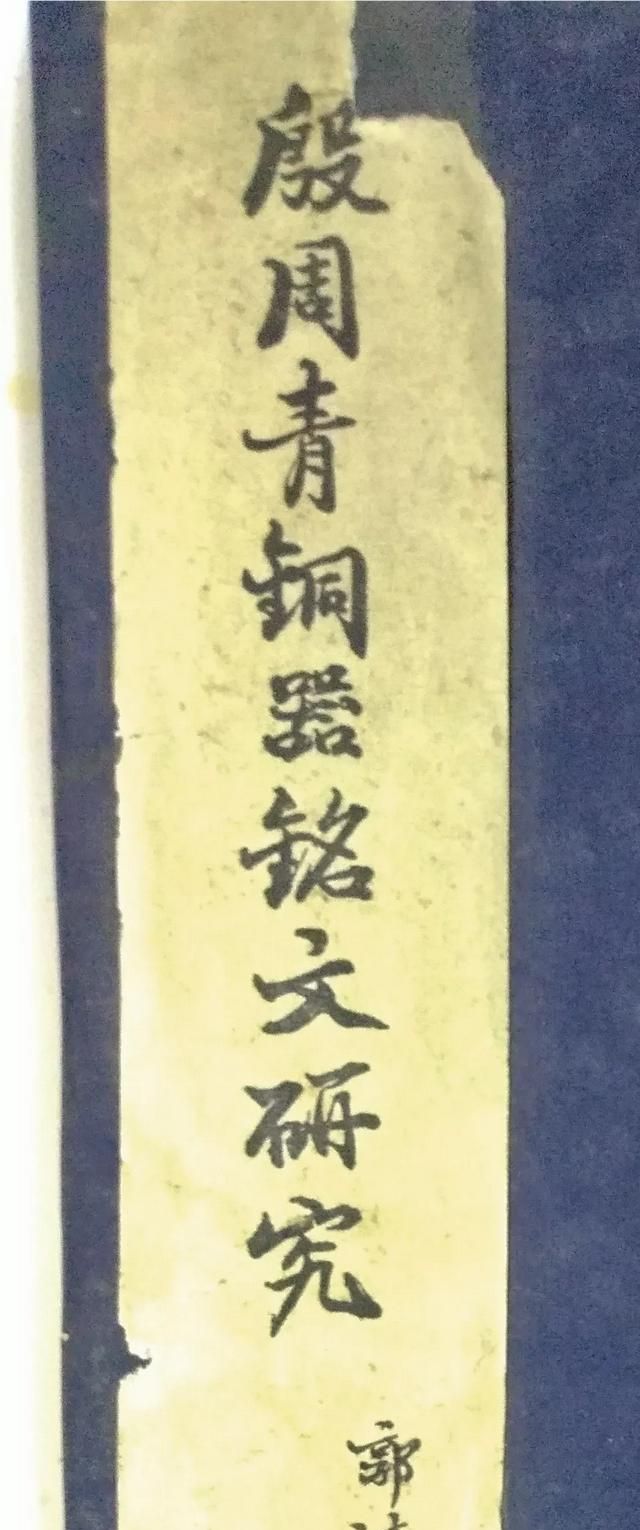 殷周青銅器銘文研究
郭